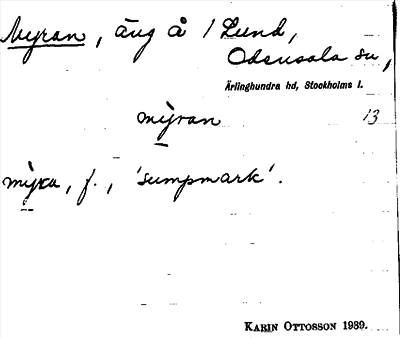 Myran, äng å 1 Lund,
Odensala sn,
Ärlinghundra hd, Stockholms l.
mỳran 13
mỳra, f., 'sumpmark'.
KARIN OTTOSSON 1939.